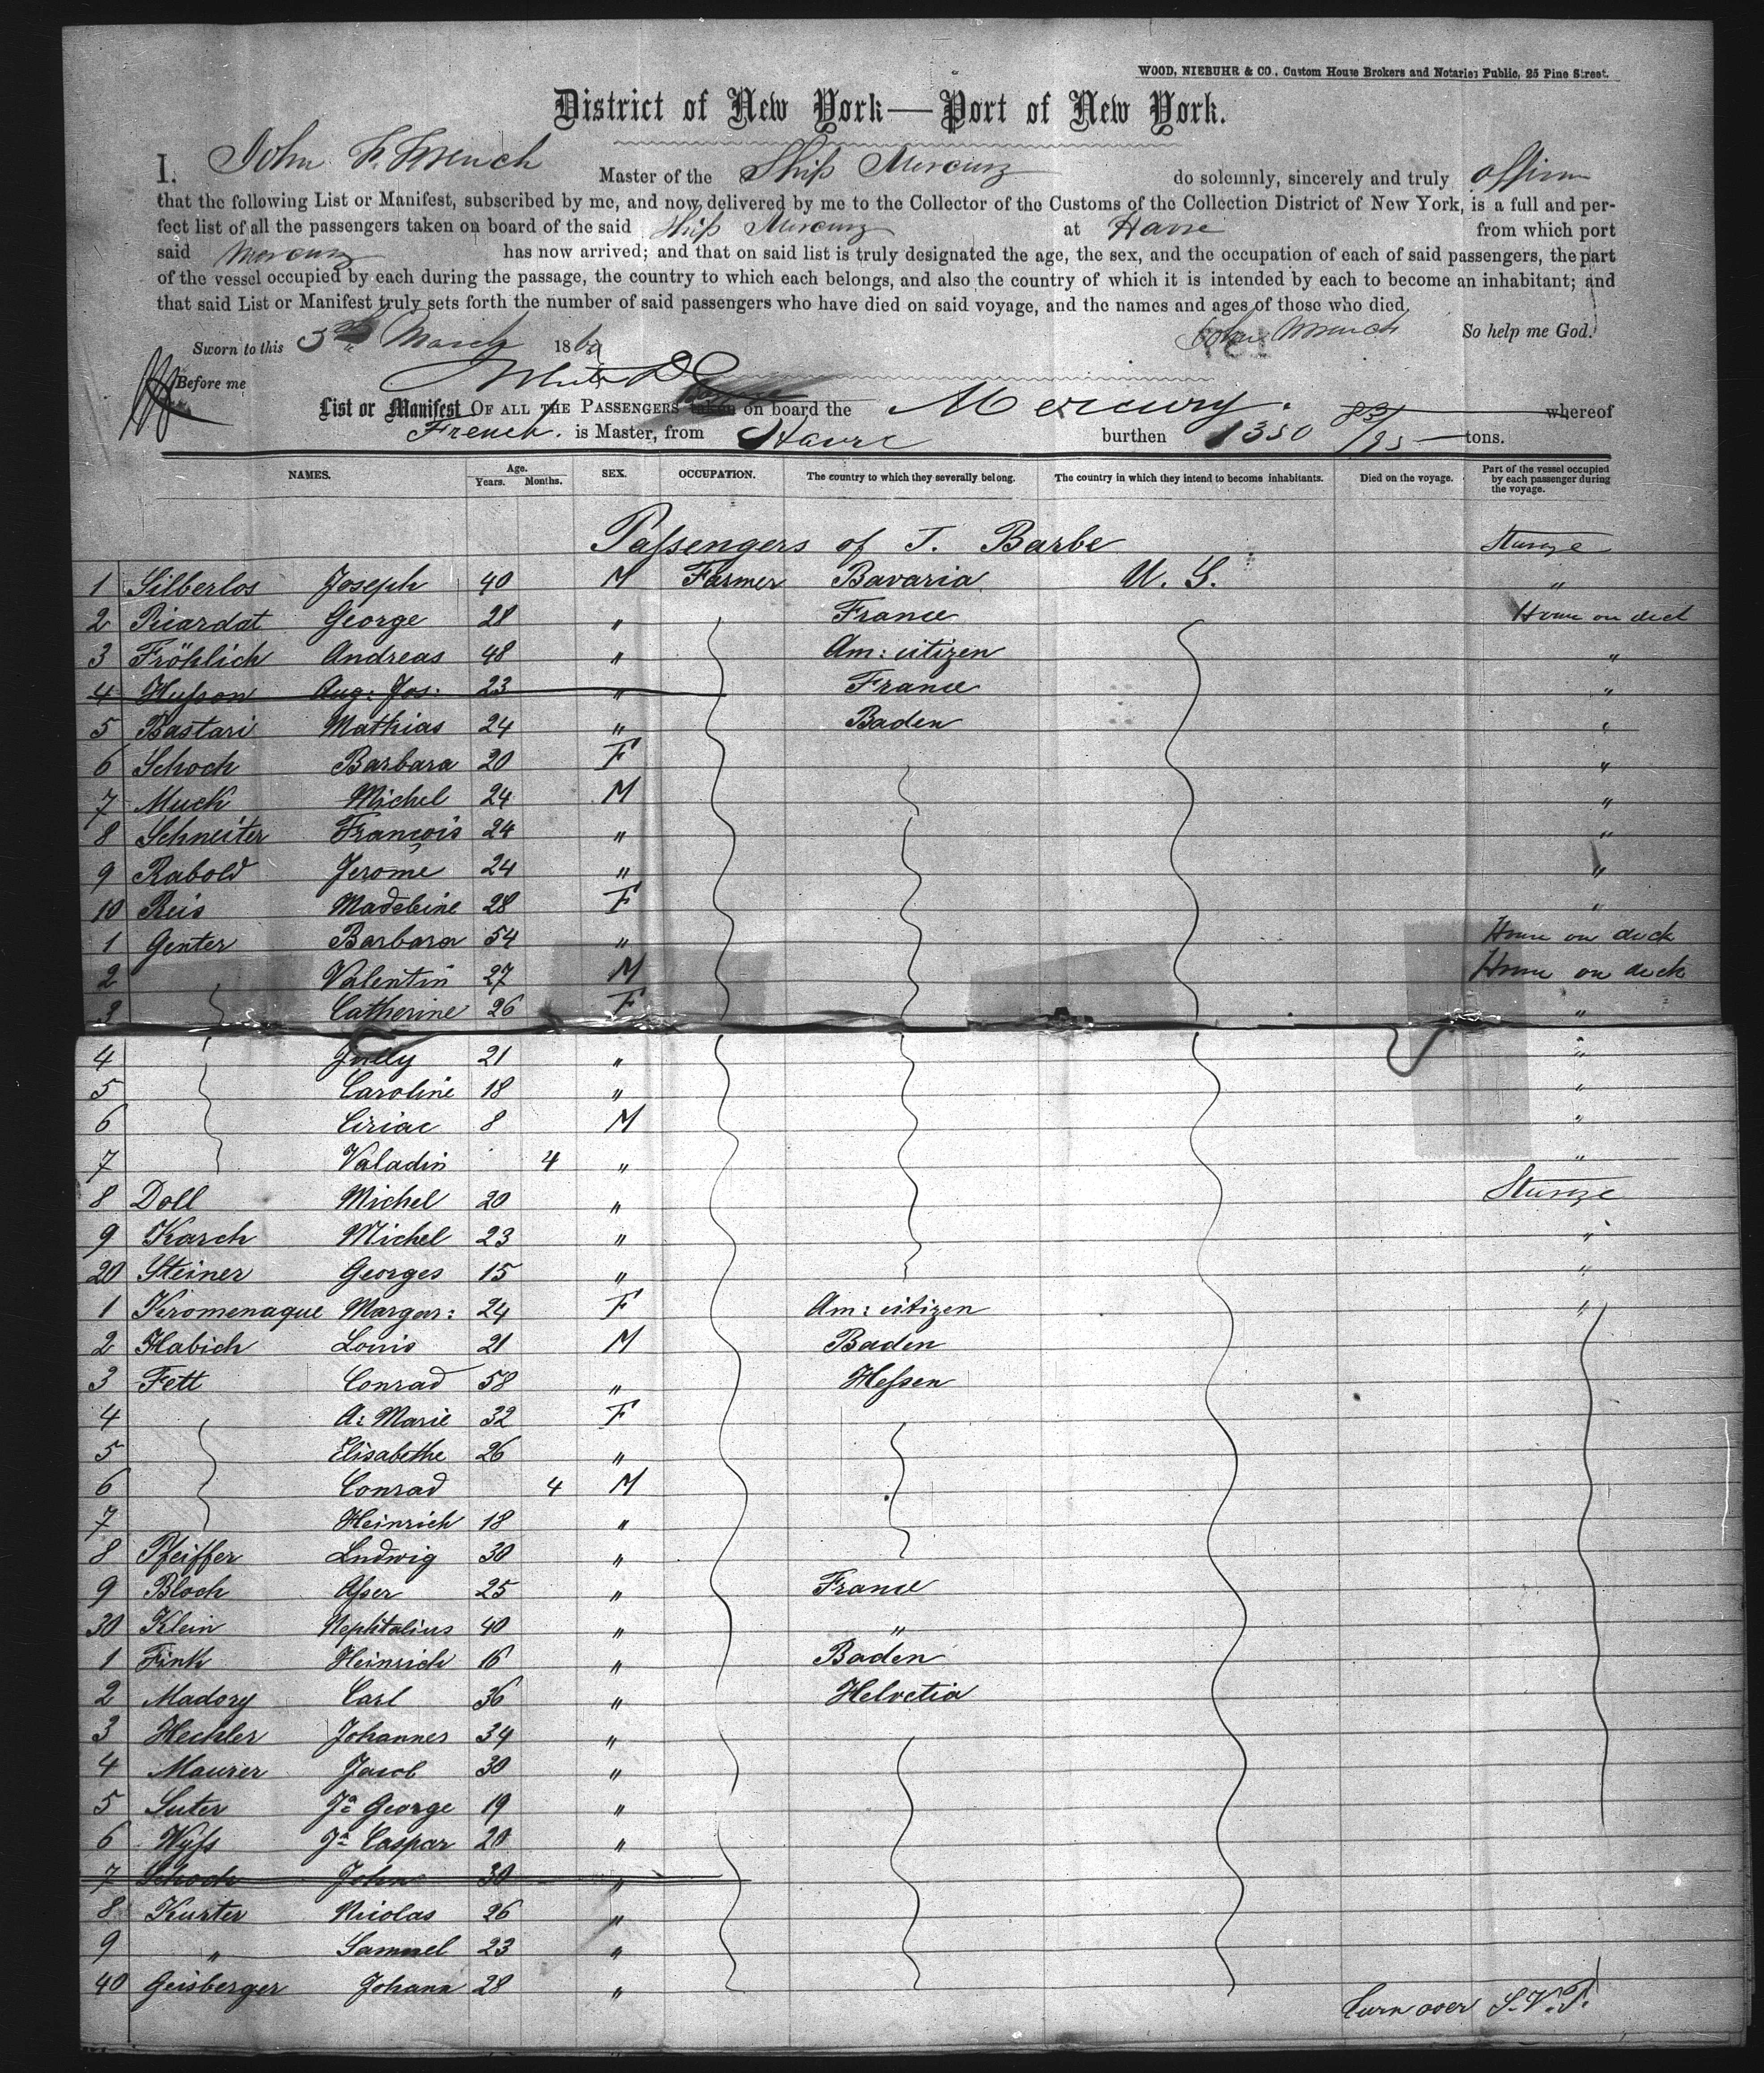 WOOD, NIEBUHR & CO., Custom House Brokers and Notaries Public, 25 Pine Street.
District of New York—Port of New York.
I, John F. French Master of the Ship Mercury do solemnly, sincerely and truly affirm
that the following List or Manifest, subscribed by me, and now delivered by me to the Collector of the Customs of the Collection District of New York, is a full and per-
fect list of all the passengers taken on board of the said Ship Mercury at Havre from which port
said Mercury has now arrived; and that on said list is truly designated the age, the sex, and the occupation of each of said passengers, the part
of the vessel occupied by each during the passage, the country to which each belongs, and also the country of which it is intended by each to become an inhabitant; and
that said List or Manifest truly sets forth the number of said passengers who have died on said voyage, and the names and ages of those who died.
Sworn to this 3d March 186 John French So help me God.
Before me
List or Manifest OF ALL THE PASSENGERS taken on board the Mercury. whereof
French. is Master, from Havre burthen 1350 83/95 tons.
NAMES. Age. Years. Months. SEX. OCCUPATION. The country to which they severally belong. The country in which they intend to become inhabitants. Died on the voyage. Part of the vessel occupied by each passenger during the voyage.
Passengers of J. Barbe Steerage
1 Silberlos Joseph 40 M Farmer Bavaria U. S. "
2 Riardat George 28 " France House on deck
3 Fröhlich Andreas 48 " Am: citizen "
4 Husson Aug: Jos: 23 " France "
5 Bastari Mathias 24 " Baden "
6 Schoch Barbara 20 F "
7 Muck Michel 24 M "
8 Schneiter François 24 " "
9 Rabold Jerome 24 " "
10 Reis Madeleine 28 F "
1 Genter Barbara 54 " House on deck
2 Valentin 27 M House on deck
3 Catherine 26 F "
4 Jully 21 " "
5 Caroline 18 " "
6 Ciriac 8 M "
7 Valadin 4 " "
8 Doll Michel 20 " Steerage
9 Karsch Michel 23 " "
20 Steiner Georges 15 " "
1 Kromenaque Margar: 24 F Am: citizen "
2 Habich Louis 21 M Baden
3 Fett Conrad 58 " Hessen
4 A: Marie 32 F
5 Elisabethe 26 "
6 Conrad 4 M
7 Heinrich 18 "
8 Pfeiffer Ludwig 30 "
9 Bloch Asser 25 " France
30 Klein Nephtalius 40 " "
1 Fink Heinrich 16 " Baden
2 Madory Carl 36 " Helvetia
3 Hechler Johannes 34 "
4 Maurer Jacob 30 "
5 Suter Ja George 19 "
6 Wyss Ja Caspar 20 "
7 Schoch John 30 "
8 Kurter Nicolas 26 "
9 " Samuel 23 "
40 Geisberger Johann 28 "
turn over S.V.P.